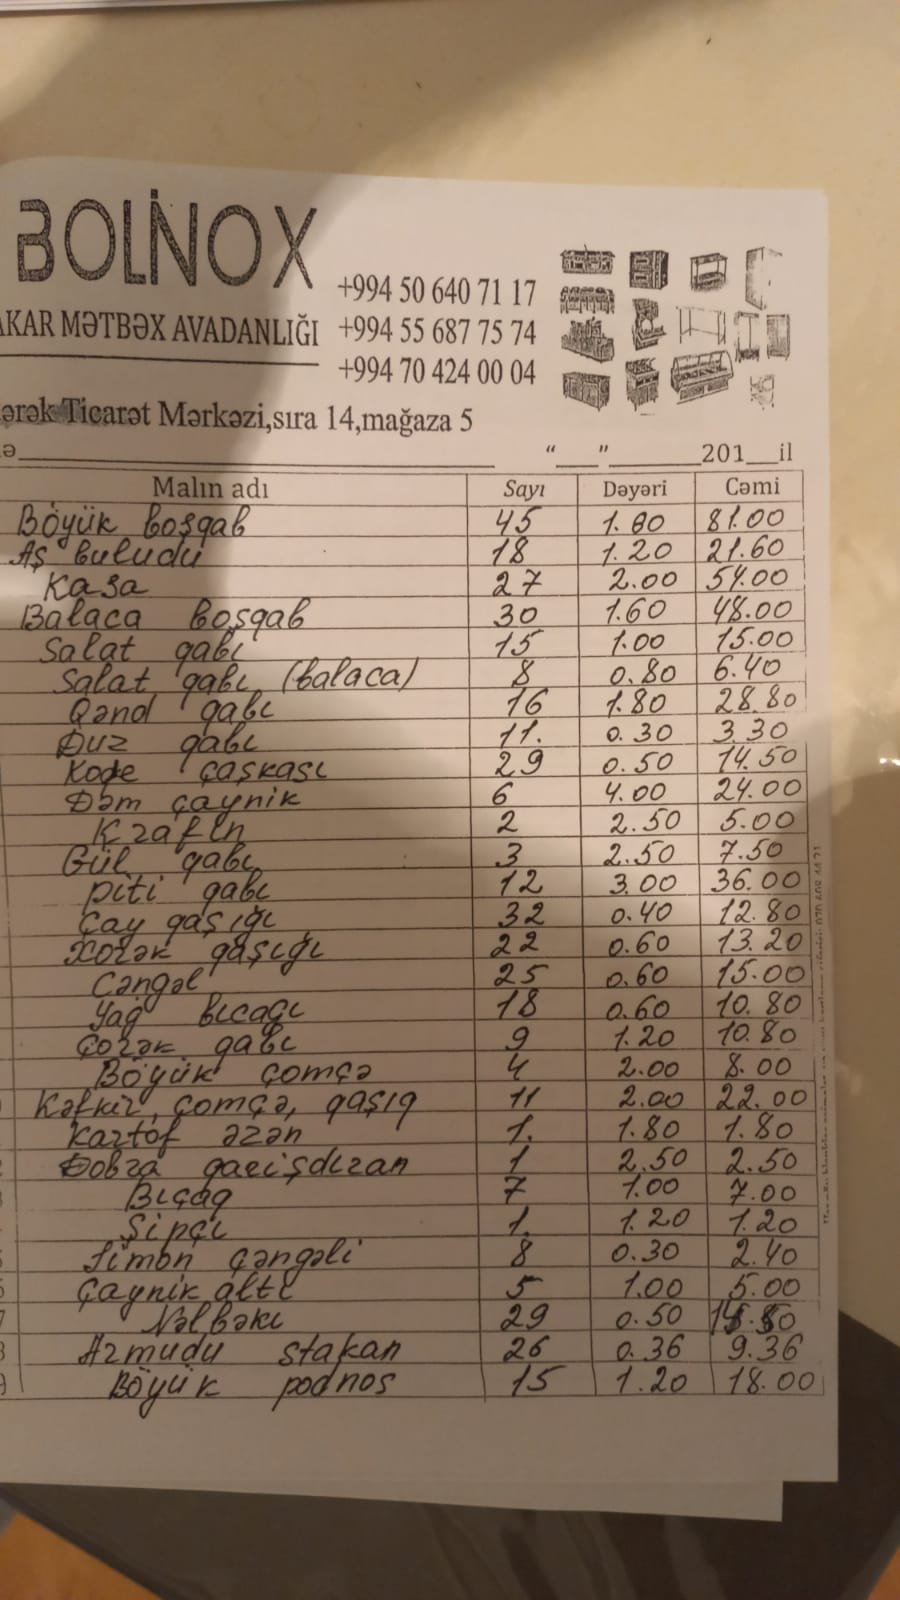 BOLİNOX
+994 50 640 71 17
AKAR MƏTBƏX AVADANLIĞI +994 55 687 75 74
+994 70 424 00 04
ərək Ticarət Mərkəzi,sıra 14,mağaza 5
ə "___" 201__il
Malın adı Sayı Dəyəri Cəmi
Böyük boşqab 45 1.80 81.00
Aş buludu 18 1.20 21.60
Kasa 27 2.00 54.00
Balaca boşqab 30 1.60 48.00
Salat qabı 15 1.00 15.00
Salat qabı (balaca) 8 0.80 6.40
Qənd qabı 16 1.80 28.80
Duz qabı 11. 0.30 3.30
Kofe çaşkası 29 0.50 14.50
Dəm çaynik 6 4.00 24.00
Krafin 2 2.50 5.00
Gül qabı 3 2.50 7.50
Piti qabı 12 3.00 36.00
Çay qaşığı 32 0.40 12.80
Xörək qaşığı 22 0.60 13.20
Cəngəl 25 0.60 15.00
Yağ bıcağı 18 0.60 10.80
Çörək qabı 9 1.20 10.80
Böyük çomçə 4 2.00 8.00
Kəfkir, çomçə, qaşıq 11 2.00 22.00
Kartof əzən 1. 1.80 1.80
Dobra qarışdıran 1 2.50 2.50
Bıçaq 7 1.00 7.00
Şipçı 1. 1.20 1.20
Limon çəngəli 8 0.30 2.40
Çaynik altı 5 1.00 5.00
Nəlbəkı 29 0.50 14.50
Armudu stakan 26 0.36 9.36
Böyük podnos 15 1.20 18.00